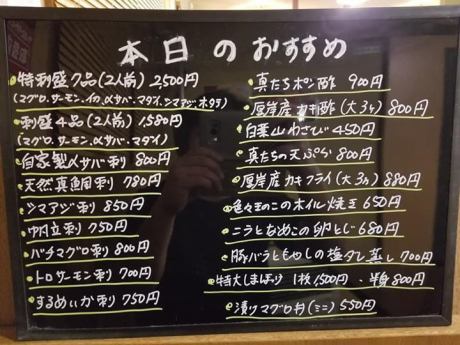 本日のおすすめ
特刺盛7品(2人前) 2,500円
(マグロ、サーモン、イカ、〆サバ、マダイ、シマアジ、ホタテ)
刺盛4品(2人前) 1,580円
(マグロ、サーモン、〆サバ、マダイ)
自家製〆サバ刺 800円
天然真鯛刺 780円
シマアジ刺 850円
帆立刺 750円
バチマグロ刺 800円
トロサーモン刺 700円
するめいか刺 750円
真たちポン酢 900円
厚岸産カキ酢(大3ヶ) 800円
白葉山わさび 450円
真たちの天ぷら 800円
厚岸産カキフライ(大3ヶ) 880円
色々きのこのホイル焼き 650円
ニラとなめこの卵とじ 680円
豚バラともやしの塩ダレ蒸し 700円
特大しまほっけ 1枚1,500円、半身800円
漬りマグロ丼(ミニ) 550円